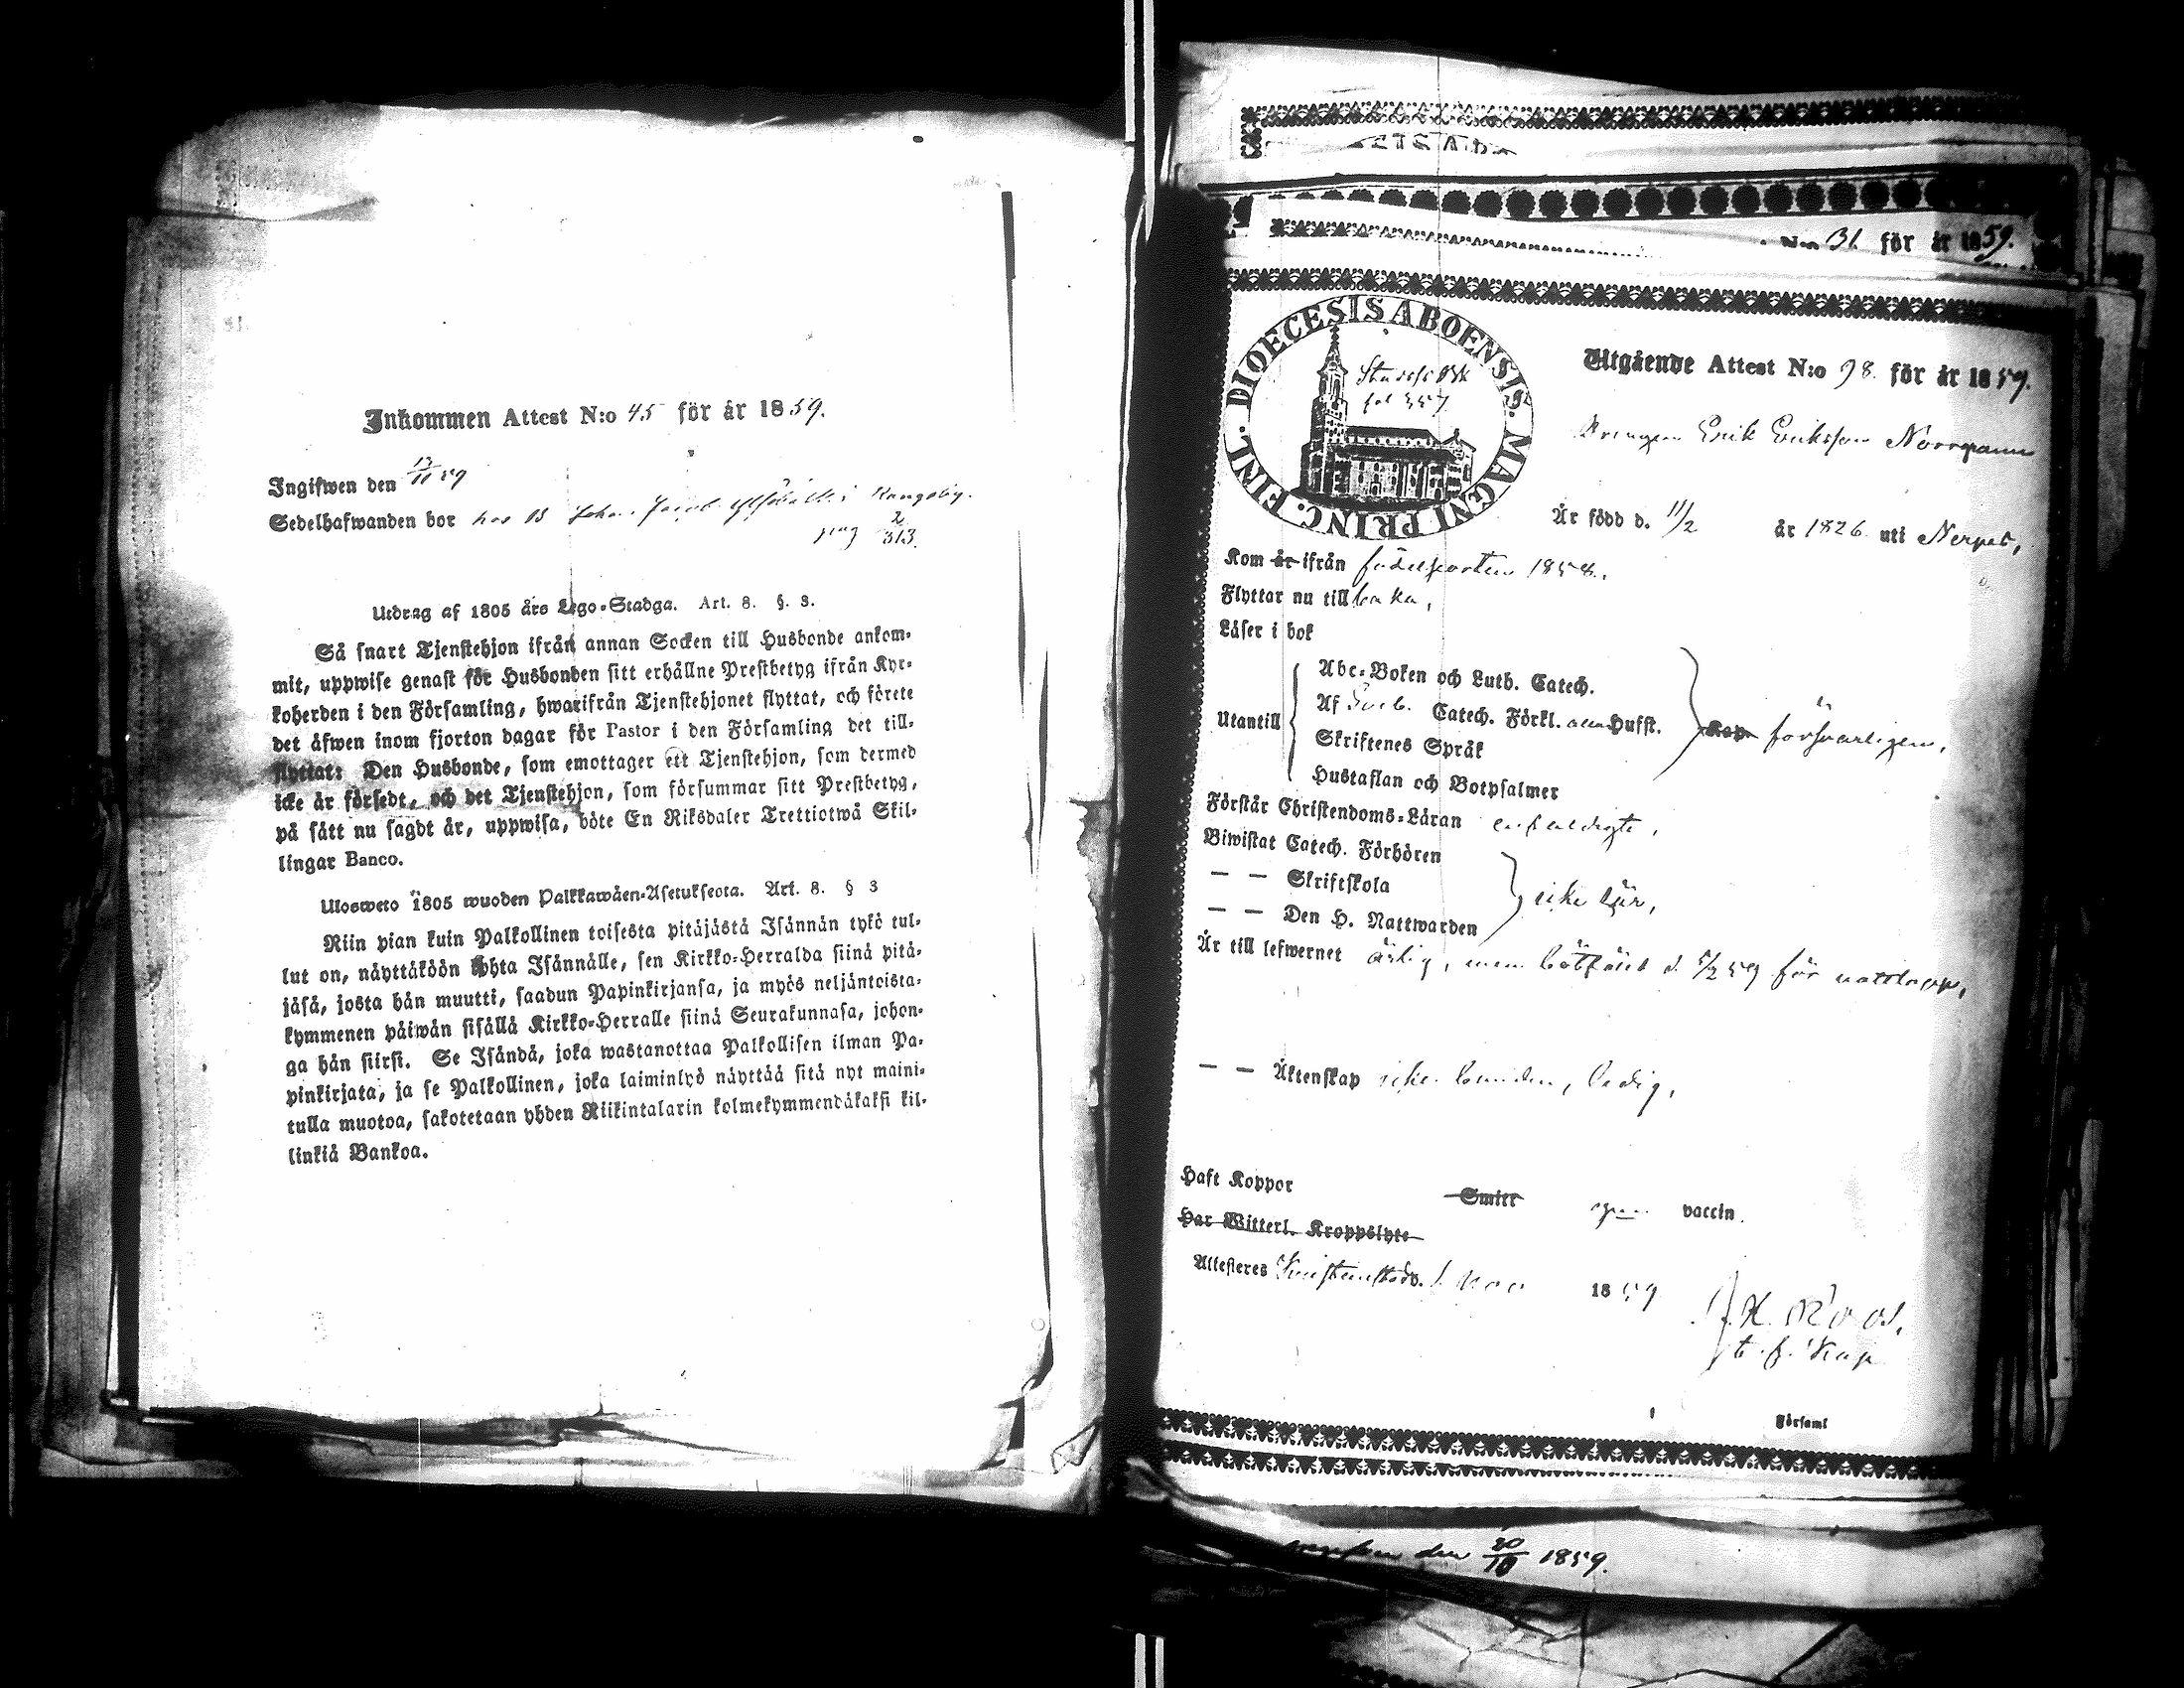 Inkommen Attest N:o 45 för år 1859.
Ingifwen den 13/11 59
Sedelhafwanden bor hos B Johan Jacob i Rangsby.
pag 2/313.
Utdrag af 1805 års Lego-Stadga. Art. 8. §. 3.
Så snart Tjenstehjon ifrån annan Socken till Husbonde ankom-
mit, uppwise genast för Husbonden sitt erhållne Prestbetyg ifrån Kyr-
koherden i den Församling, hwarifrån Tjenstehjonet flyttat, och förete
det äfwen inom fjorton dagar för Pastor i den Församling det till-
flyttat: Den Husbonde, som emottager ett Tjenstehjon, som dermed
icke är försedt, och det Tjenstehjon, som försummar sitt Prestbetyg,
på sätt nu sagdt är, uppwisa, böte En Riksdaler Trettiotwå Skil-
lingar Banco.
Ulosweto 1805 wuoden Palkkawäen-Asetuksesta. Art. 8. § 3
Niin pian kuin Palkollinen toisesta pitäjästä Isännän tykö tul-
lut on, näyttäköön kohta Isännälle, sen Kirkko-Herralda siinä pitä-
jäsä, josta hän muutti, saadun Papinkirjansa, ja myös neljäntoista-
kymmenen päiwän sisällä Kirkko-Herralle siinä Seurakunnasa, johon-
ga hän siirsi. Se Isändä, joka wastanottaa Palkollisen ilman Pa-
pinkirjata, ja se Palkollinen, joka laiminlyö näyttää sitä nyt maini-
tulla muotoa, sakotetaan yhden Riikintalarin kolmekymmendäkaksi kil-
linkiä Bankoa.
N:o 31. för år 1859.
DIOECESIS ABOENSIS. MAGNI PRINC. FINL.
fol 557
Utgående Attest N:o 98. för år 1859.
Drengen Erik Eriksson Norrgann
Är född d. 11/2 år 1826 uti Nerpes,
Kom år ifrån födelseorten 1858.
Flyttar nu tillbaka,
Läser i bok
Utantill
Abc-Boken och Luth. Catech.
Af Sveb. Catech. Förkl. Hufst.
Skriftenes Språk
Hustaflan och Botpsalmer
Kap försvarligen,
Förstår Christendoms-Läran enfaldigt,
Biwistat Catech. Förhören
— — Skriftskola
— — Den H. Nattwarden
icke här,
Är till lefwernet ärlig, men bötfäld d. 5/2 59 för nattlopp,
— — Äktenskap icke bunden, ledig,
Haft Koppor Smitt vaccin.
Har Witterl. Kroppslyte
Attesteres Kristinestad. 1 Nov 1859
t. f. Kap
Församl
Ingifven den 20/10 1859.